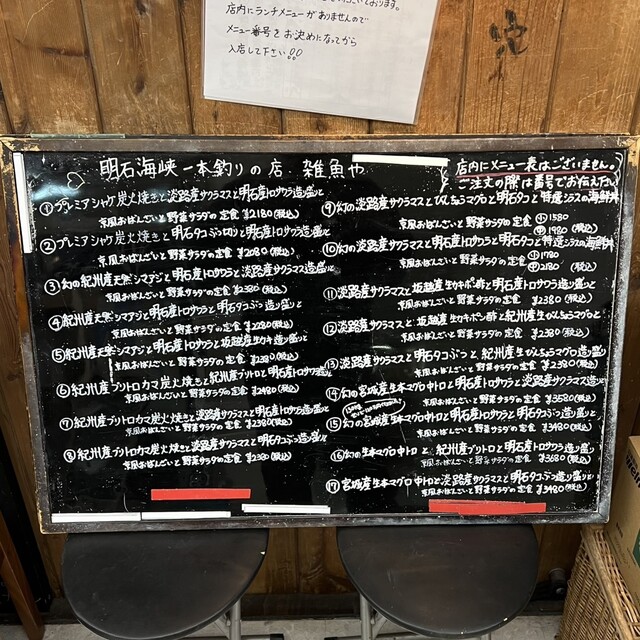 店内にランチメニューがありませんので
メニュー番号をお決めになってから
入店して下さい!!
明石海峡一本釣りの店 雑魚や
店内にメニュー表はございません。
ご注文の際は番号でお伝え下さい
①プレミアシャケ炭火焼きと淡路産サクラマスと明石産トロサワラ造り盛りと
京風おばんざいと野菜サラダの定食 ¥2180(税込)
②プレミアシャケ炭火焼きと明石タコぶつ切りと明石産トロサワラ造り盛りと
京風おばんざいと野菜サラダの定食 ¥2080(税込)
③幻の紀州産天然シマアジと明石産トロサワラと淡路産サクラマス造り盛りと
京風おばんざいと野菜サラダの定食 ¥2380(税込)
④紀州産天然シマアジと明石産トロサワラと明石タコぶつ造り盛りと
京風おばんざいと野菜サラダの定食 ¥2280(税込)
⑤紀州産天然シマアジと明石産トロサワラと坂越産生カキ造り盛りと
京風おばんざいと野菜サラダの定食 ¥2380(税込)
⑥紀州産ブリトロカマ炭火焼きと紀州産ブリトロと明石産トロサワラ造り盛りと
京風おばんざいと野菜サラダの定食 ¥2480(税込)
⑦紀州産ブリトロカマ炭火焼きと淡路産サクラマスと明石産トロサワラ造り盛りと
京風おばんざいと野菜サラダの定食 ¥2380(税込)
⑧紀州産ブリトロカマ炭火焼きと淡路産サクラマスと明石タコぶつ造り盛りと
京風おばんざいと野菜サラダの定食 ¥2380(税込)
⑨幻の淡路産サクラマスとびんちょうマグロと明石タコと特選シラスの海鮮丼
京風おばんざいと野菜サラダの定食 小1580
中1980(税込)
⑩幻の淡路産サクラマスと明石産トロサワラと明石タコと特選シラスの海鮮丼
京風おばんざいと野菜サラダの定食 小1780
中2180(税込)
⑪淡路産サクラマスと坂越産生カキポン酢と明石産トロサワラ造り盛りと
京風おばんざいと野菜サラダの定食 ¥2380(税込)
⑫淡路産サクラマスと坂越産生カキポン酢と紀州産生びんちょうマグロと
京風おばんざいと野菜サラダの定食 ¥2380(税込)
⑬淡路産サクラマスと明石タコぶつと紀州産生びんちょうマグロ造り盛り
京風おばんざいと野菜サラダの定食 ¥2380(税込)
⑭幻の宮城産生本マグロ中トロと明石産トロサワラと淡路産サクラマス造り盛りと
京風おばんざいと野菜サラダの定食 ¥3580(税込)
⑮幻の宮城産生本マグロ中トロと明石産トロサワラと明石タコぶつ造り盛りと
京風おばんざいと野菜サラダの定食 ¥3480(税込)
⑯幻の生本マグロ中トロと紀州産ブリトロと明石産トロサワラ造り盛り
京風おばんざいと野菜サラダの定食 ¥3680(税込)
⑰宮城産生本マグロ中トロと淡路産サクラマスと明石タコぶつ造り盛りと
京風おばんざいと野菜サラダの定食 ¥3480(税込)